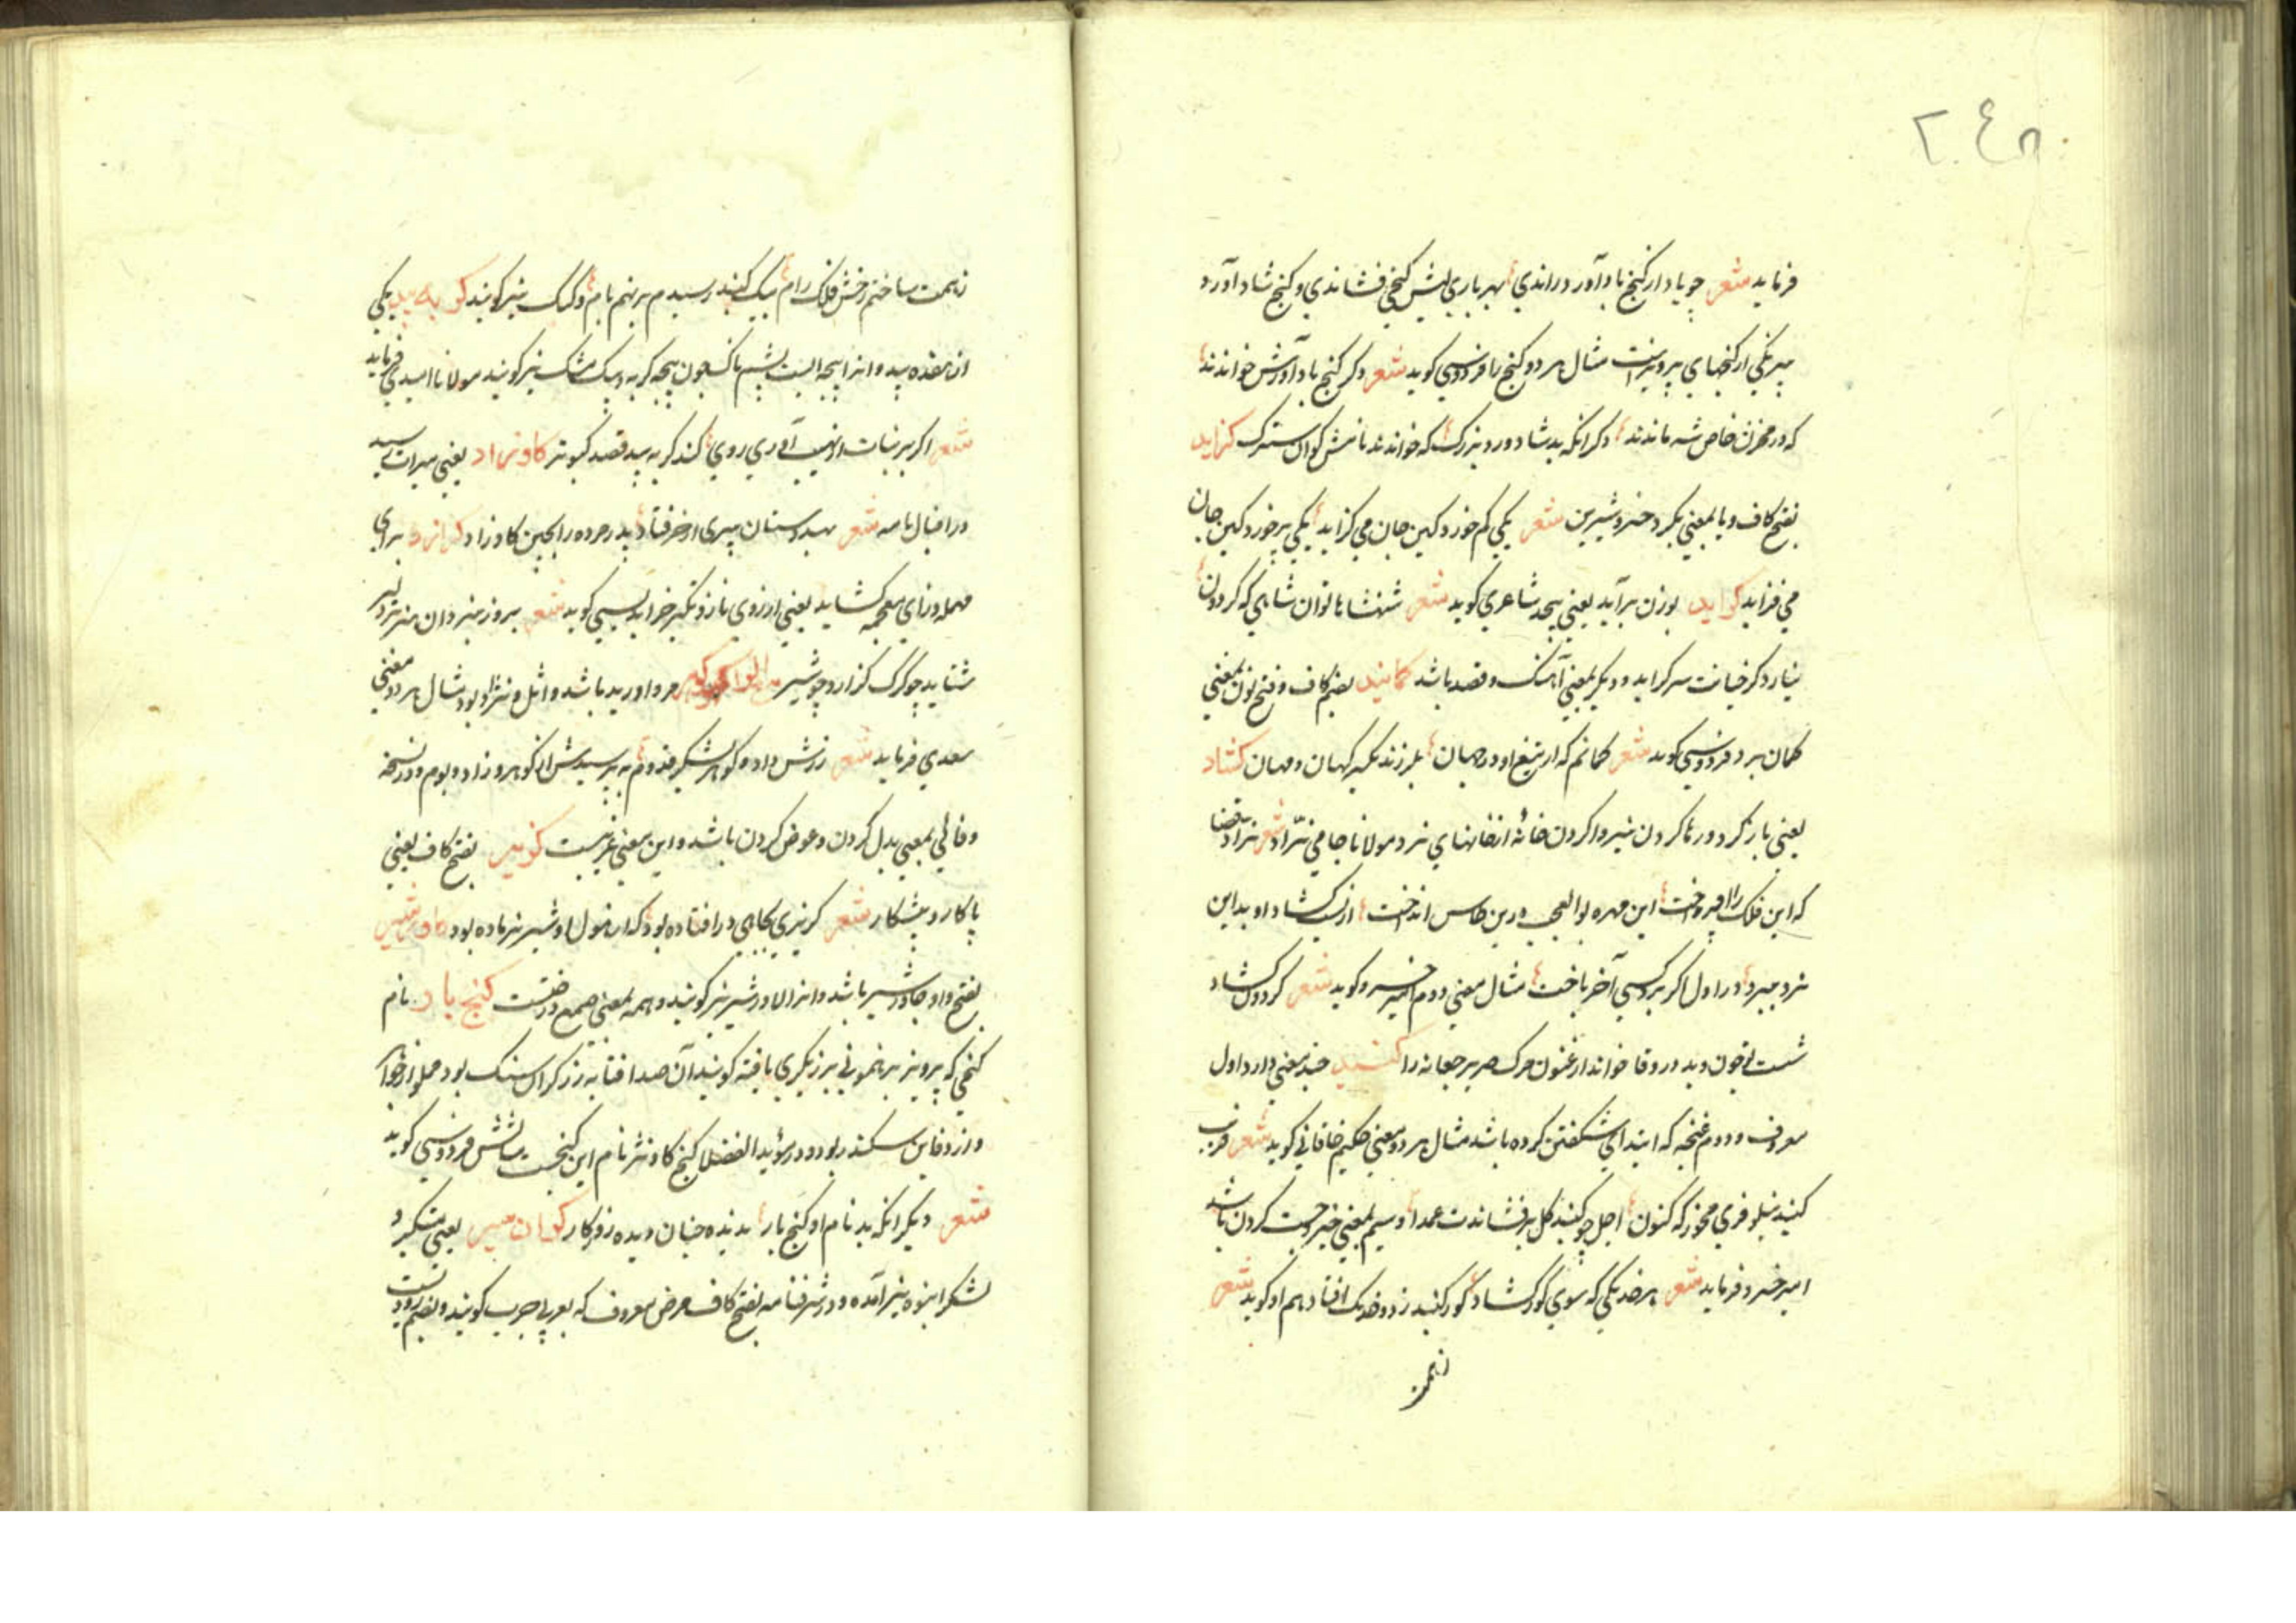 ٢٤٨
فرماید شعر چو باد ار کنج باد آورد راندی بهر بادی لبش کنجی فشاندی و کنج شاد آورد
هر یکی از کنجهای پرویزست مثال هر دو کنج را فردوسی کوید شعر دکر کنج باد آورش خواندند
که در مخزن خاص شه ماندند دکر آنکه بد شادورد بزرک که خواندند نامش کوان سترک کزاید
بفتح کاف و یا بمعنی بکزد خسرو شیرین شعر یکی کم خورد کین جان می کزاید یکی پر خورد کین جان
می فزاید کراید بوزن برآید یعنی پیچد شاعری کوید شعر شهنشاها توان شاهی که کردون
نیارد کز خیانت سر کراید و دیکر بمعنی آهنک و قصد باشد کمانید بضم کاف و فتح نون بمعنی
کمان برد فردوسی کوید شعر کمانم که از تیغ او در جهان بلرزند یکسر کهان و مهان کشاد
یعنی باز کرد و رها کردن نیز وا کردن خانه از خانهای نرد مولانا جامی نژاد شعر نراد قضا
که این فلک را افروخت این مهره بوالعجب درین طاس انداخت از بس کشاد او بداین
نرد مبر در اول اکر بردسی آخر باخت مثال معنی دوم امیر خسرو کوید شعر کردون کشاد
شست چون دید در وقا خواند ارغنون مرک صریر جعانه را کنبد چند معنی دارد اول
معروف و دوم غنچه که ابتدای شکفتن کرده باشد مثال هر دو معنی حکیم خاقانی کوید شعر فریب
کنبد نیلوفری مخور که کنون اجل چو کنبد کل برفشاندت عمدا و سیم بمعنی خیز و جست کردن باشد
امیر خسرو فرماید شعر هر خدنکی که سوی کور کشاد کور کنبد زد و خدنک افتاد هم او کوید شعر
ز همت
ز همت ساختم رخش فلک رام بیک کنبد رسیدم بر نهم بام و کنبک نیز کویند کربه بید یکی
از هفده بید و آنرا پنجه ایست پشم ناک همچون پنجه کربه و بید مشک نیز کویند مولانا امیدی فرماید
شعر اکر بر نبات از نهیب آوری روی کند کربه بید قصد کبوتر کاوزاد یعنی میراث رسید
در اقبال نامه شعر بهندوستان پیری از خر فتاد پدر مرده را بچین کاو زاد کرازد برای
مهمله و زای معجمه کشاید یعنی از روی ناز و تکبر خرامد اسدی کوید شعر بروز نبرد آن هژبر دلیر
شتابد چو کرک کرازد چو شیر مرواورید باشد و اثل و نژاد بود مثال هر دو معنی
سعدی فرماید شعر زرش داد و کوهر بشکر قدوم بپرسیدش از کوهر و زاد و بوم و در نسخه
وفائی بمعنی بدل کردن و عوض کردن باشد و این معنی غریبست کزیر بفتح کاف یعنی
پاکار و پیشکار شعر کزیری بچاهی در افتاده بود که از هول او شیر نر ماده بود کاوشیر
بفتح واو جاوشیر باشد و آنرا لاورشیر نیز کویند و همه بمعنی صمغ درختست کنج باد نام
کنجی که پرویز برهنمونی برزیکری یافته کویند آن صد افتابه زر کران سنک بود مملو از جواهر
و از دفاین سکندر بود و در مؤید الفضلا کنج کاو نیز نام این کنجست مثالش فردوسی کوید
شعر دیکر آنکه بد نام او کنج بار ندیده چنان دیده روزکار کوان سر یعنی متکبر و
لشکر انبوه نیز آمده و در شرفنامه بفتح کاف مرض معروف که بعربی جرب کویند و بضم رودیست